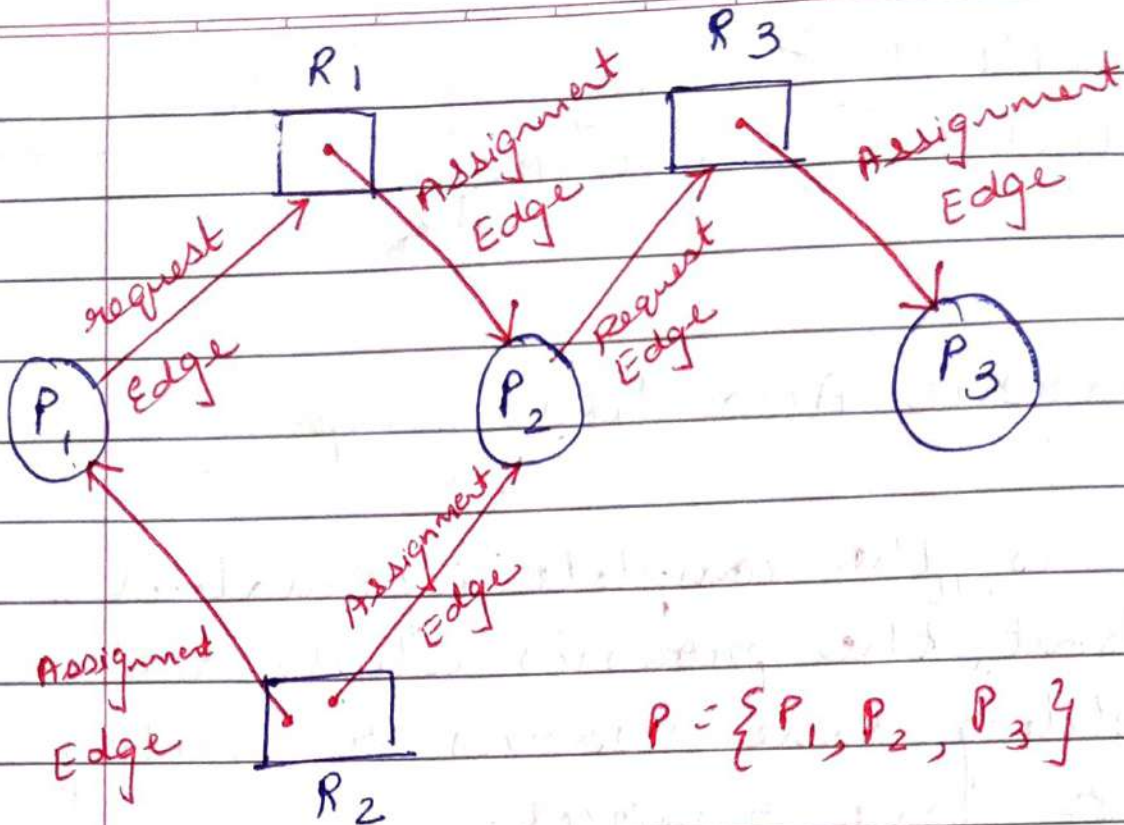 R1
R3
Assignment
Edge
Assignment
Edge
request
Edge
Request
Edge
P1
P2
P3
Assignment
Edge
Assignment
Edge
R2
P = {P1, P2, P3}